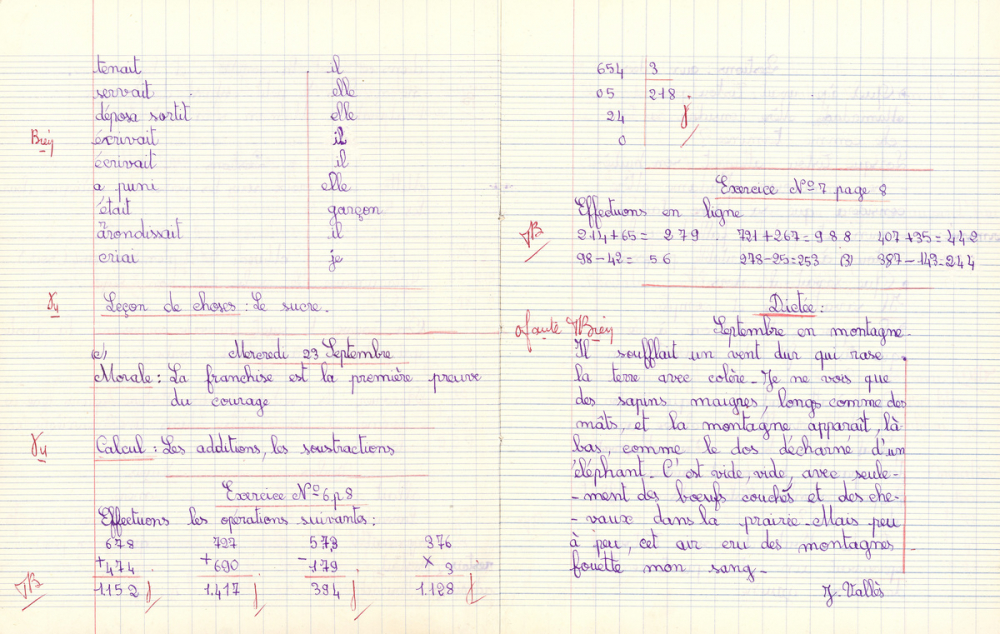 tenait il
servait elle
déposa sortit elle
Bien écrivait il
écrivait il
a puni elle
était garçon
arondissait il
criai je
Vu Leçon de choses : Le sucre.
Mercredi 23 Septembre
Morale : La franchise est la première preuve
du courage
Vu Calcul : Les additions, les soustractions
Exercice N°6 p 8
Effectuons les opérations suivantes :
678 727 573 376
+474 +690 -179 × 3
TB 1152 1.417 394 1.128
654 3
05 218
24
0
Exercice N°7 page 8
Effectuons en ligne
TB 214+65= 279 721+267=988 407+35=442
98-42= 56 278-25=253 (3) 387-143=244
Dictée :
0 faute TBien Septembre en montagne.
Il soufflait un vent dur qui rase
la terre avec colère. Je ne vois que
des sapins maigres, longs comme des
mâts, et la montagne apparaît, là
bas, comme le dos décharné d'un
éléphant. C'est vide, vide, avec seule-
-ment des bœufs couchés et des che-
-vaux dans la prairie. Mais peu
à peu, cet air cru des montagnes
fouette mon sang.
J. Vallès